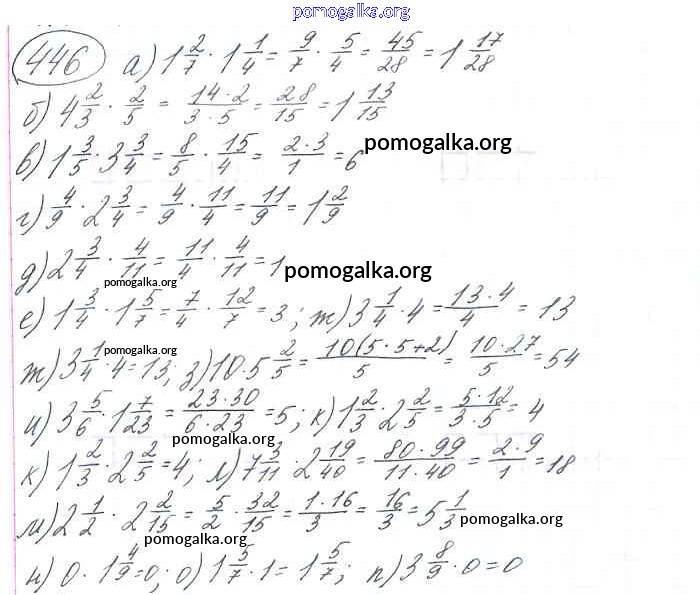 pomogalka.org
446 а) 1 2/7 · 1 1/4 = 9/7 · 5/4 = 45/28 = 1 17/28
б) 4 2/3 · 2/5 = 14·2/3·5 = 28/15 = 1 13/15
в) 1 3/5 · 3 3/4 = 8/5 · 15/4 = 2·3/1 = 6 pomogalka.org
г) 4/9 · 2 3/4 = 4/9 · 11/4 = 11/9 = 1 2/9
д) 2 3/4 · 4/11 = 11/4 · 4/11 = 1 pomogalka.org pomogalka.org
е) 1 3/4 · 1 5/7 = 7/4 · 12/7 = 3; ж) 3 1/4 · 4 = 13·4/4 = 13
pomogalka.org
ж) 3 1/4 · 4 = 13; з) 10 · 5 2/5 = 10(5·5+2)/5 = 10·27/5 = 54
и) 3 5/6 · 1 7/23 = 23·30/6·23 = 5; к) 1 2/3 · 2 2/5 = 5·12/3·5 = 4
pomogalka.org
к) 1 2/3 · 2 2/5 = 4; л) 7 3/11 · 2 19/40 = 80·99/11·40 = 2·9/1 = 18
м) 2 1/2 · 2 2/15 = 5/2 · 32/15 = 1·16/3 = 16/3 = 5 1/3 pomogalka.org
pomogalka.org
н) 0 · 1 4/9 = 0; о) 1 5/7 · 1 = 1 5/7; п) 3 8/9 · 0 = 0